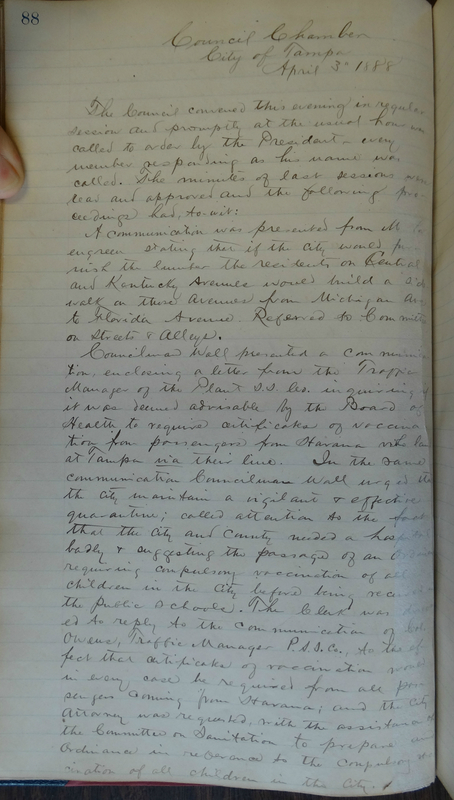 88
Council Chamber
City of Tampa
April 3d 1888
The Council convened this evening in regular
session and promptly at the usual hour was
called to order by the President - every
member responding as his name was
called. The minutes of last sessions were
read and approved and the following pro-
ceedings had, to-wit:
A communication was presented from
stating that if the City would fur-
nish the lumber the residents on Central
and Kentucky Avenues would build a side
walk on those Avenues from Michigan Av
to Florida Avenue. Referred to Committee
on Streets & Alleys.
Councilman Wall presented a communica-
tion, enclosing a letter from the Traffic
Manager of the Plant S.S. Co. inquiring if
it was deemed advisable by the Board of
Health to require certificates of vaccina-
tion from passengers from Havana who land
at Tampa via their line. In the same
communication Councilman Wall urged that
the City maintain a vigilant & effective
quarantine; called attention to the fact
that the City and County needed a hospital
badly & suggesting the passage of an Ordinance
requiring compulsory vaccination of all
children in the City before being received
the public schools. The Clerk was
ed to reply to the communication of
Owens, Traffic Manager P.S.S. Co., to the ef-
fect that certificate of vaccination would
in every case be required from all pas-
sengers coming from Havana; and the City
Attorney was requested, with the assistance of
the Committee on Sanitation to prepare an
Ordinance in reference to the compulsory vac-
cination of all children in the City.